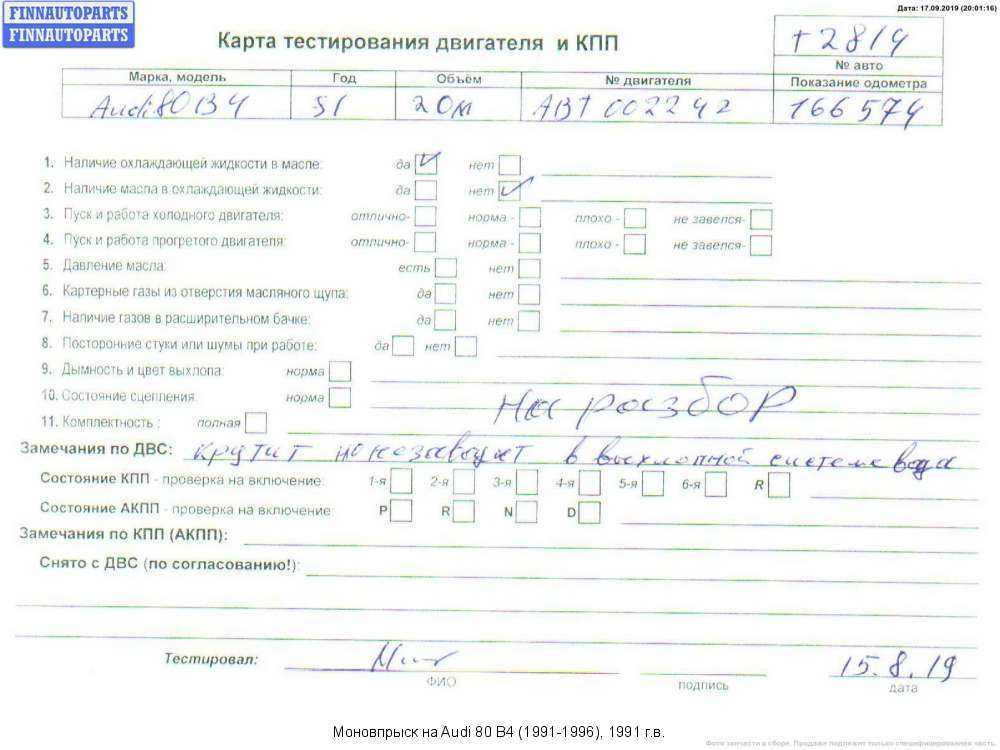 FINNAUTOPARTS
FINNAUTOPARTS
Дата: 17.09.2019 (20:01:16)
Карта тестирования двигателя и КПП
т2814
№ авто
Марка, модель Год Объём № двигателя Показание одометра
Audi 80 B4 91 2.0м ABT 002242 166574
1. Наличие охлаждающей жидкости в масле: да нет
2. Наличие масла в охлаждающей жидкости: да нет
3. Пуск и работа холодного двигателя: отлично- норма - плохо - не завелся-
4. Пуск и работа прогретого двигателя: отлично- норма - плохо - не завелся-
5. Давление масла: есть нет
6. Картерные газы из отверстия масляного щупа: да нет
7. Наличие газов в расширительном бачке: да нет
8. Посторонние стуки или шумы при работе: да нет
9. Дымность и цвет выхлопа: норма
10. Состояние сцепления: норма
на разбор
11. Комплектность : полная
Замечания по ДВС: крутит но незаводит в выхлопной системе вода
Состояние КПП - проверка на включение: 1-я 2-я 3-я 4-я 5-я 6-я R
Состояние АКПП - проверка на включение: P R N D
Замечания по КПП (АКПП):
Снято с ДВС (по согласованию!):
Тестировал: 15.8.19
ФИО подпись дата
Моновпрыск на Audi 80 B4 (1991-1996), 1991 г.в.
Фото запчасти в сборе. Продаже подлежит только специфицированная часть.